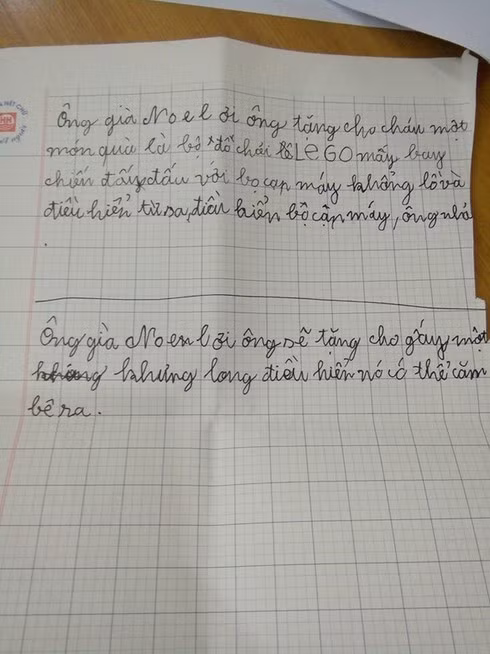 Ông già Noel ơi ông tặng cho cháu một
món quà là bộ đồ chơi lôLEGO mấy bay
chiến đấy, đấu với bọ cạp máy khổng lồ và
điều hiển từ sa, điều hiển bộ cập máy, ông nhó
.
Ông già Noenl ơi ông sẽ tặng cho gấuy một
khủng long điều hiển nó có thể căm
bê ra.